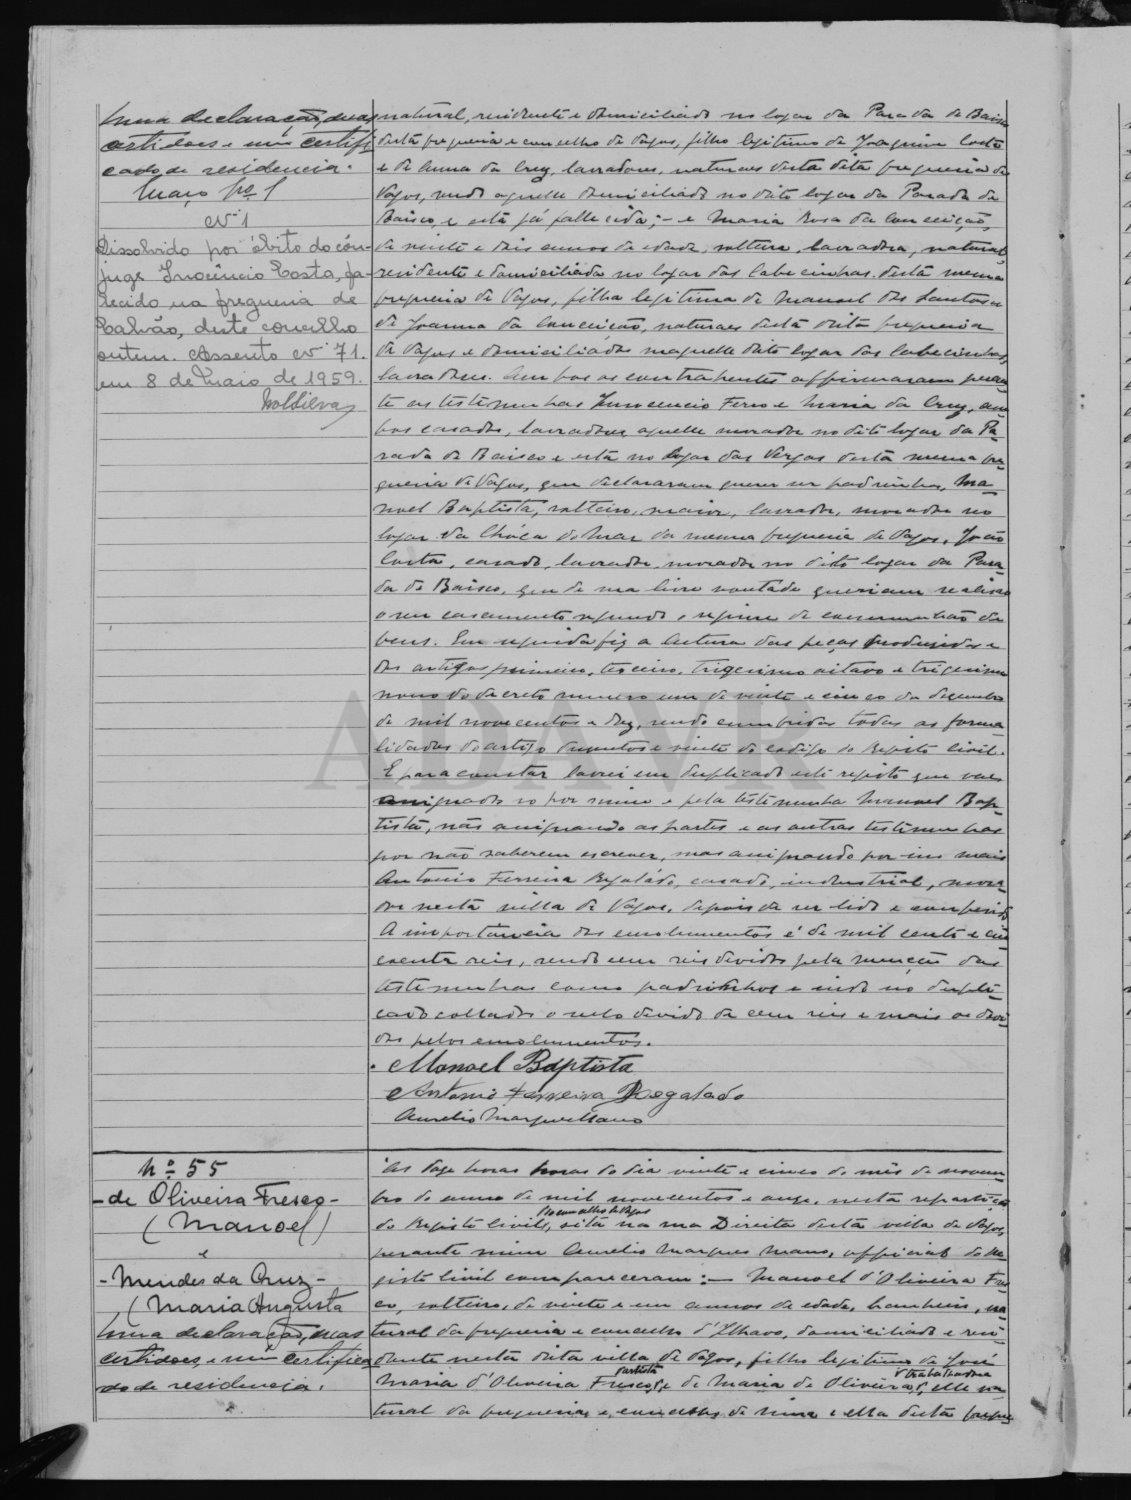 Uma declaração, duas
certidoes e um certifi
cado de residencia.
Março pº 1
Nº 1
Dissolvido por óbito do côn-
juge Inocêncio Costa, fa-
lecido na freguesia de
Calvão, deste concelho
ontem. Assento nº 71.
em 8 de Maio de 1959.
natural, residente e domiciliado no logar da Parada de Baixo
desta freguesia e concelho de Vagos, filho legitimo de Joaquim Costa
e de Anna da Cruz, lavradores, naturaes desta dita freguesia de
Vagos, sendo aquelle domiciliado no dito logar da Parada de
Baixo, e esta já fallecida; - e Maria Rosa da Conceição,
de vinte e dois annos de edade, solteira, lavradora, natural
residente e domiciliada no logar das Cabecinhas desta mesma
freguesia de Vagos, filha legitima de Manoel dos Santos e
de Joanna da Conceição, naturaes desta dita freguesia
de Vagos e domiciliados naquelle dito logar das Cabecinhas,
lavradores. Ambos os contrahentes affirmaram peran
te as testemunhas Innocencio Ferro e Maria da Cruz, am
bos casados, lavradores, aquelle morador no dito logar da Pa-
rada de Baixo e esta no logar das Vergas desta mesma fre-
guesia de Vagos, que declararam querer ser padrinhos, Ma-
noel Baptista, solteiro, maior, lavrador, morador no
logar da Chóca do Mar da mesma freguesia de Vagos, João
Costa, casado, lavrador, morador no dito logar da Para-
da de Baixo, que de sua livre vontade queriam realisar
o seu casamento segundo o regime de communhão de
bens. Em seguida fiz a leitura das peças produzidas e
dos artigos primeiro, terceiro, trigesimo oitavo e trigesimo
nono do decreto numero um de vinte e cinco de dezembro
de mil novecentos e dez, sendo cumpridas todas as forma
lidades do artigo duzentos e vinte do codigo do Registo Civil.
E para constar lavrei em duplicado este registo que vae
assignado só por mim e pela testemunha Manoel Bap-
tista, não assignando as partes e as outras testemunhas
por não saberem escrever, mas assignando por ins mais
Antonio Ferreira Regalado, casado, industrial, mora-
dor nesta villa de Vagos, depois de ser lido e conferido
A importancia dos emolumentos é de mil cento e cin
coenta reis, sendo cem reis devidos pela menção das
testemunhas como padrinhos e indo no dupli-
cado collados o sello devido de cem reis e mais os devi
dos pelos emolumentos.
Manoel Baptista
Antonio Ferreira Regalado
Aurelio Marques Mano
Nº 55
- de Oliveira Fresco -
(Manoel)
e
- Mendes da Cruz -
(Maria Augusta
Uma declaração, duas
certidoes, e um certifica
do de residencia.
Ás doze horas horas do dia vinte e cinco do mês de novem
bro do anno de mil novecentos e onze, nesta repartição
do Registo Civil, do concelho de Vagos sita na rua Direita desta villa de Vagos,
perante mim Aurelio Marques Mano, official do Re-
gisto Civil compareceram: - Manoel d'Oliveira Fres
co, solteiro, de vinte e um annos de edade, banheiro, na
tural da freguesia e concelho d'Ilhavo, domiciliado e resi-
dente nesta dita villa de Vagos, filho legitimo de José
Maria d'Oliveira Fresco, e de Maria de Oliveira, elle na
tural da freguesia e concelho de Mira e ella desta fregue
ADAVR